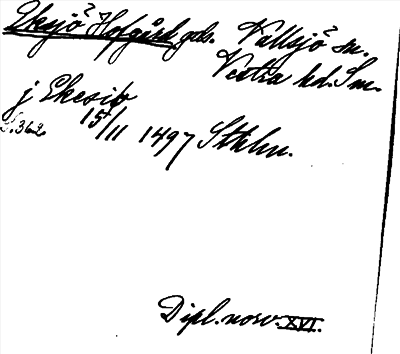 Eksjö² Hofgård gds. Vallsjö² sn.
Vestra hd. Sm.
j Ekesio
S. 362. 15/11 1497 Sthlm.
Dipl. norv. XVI.